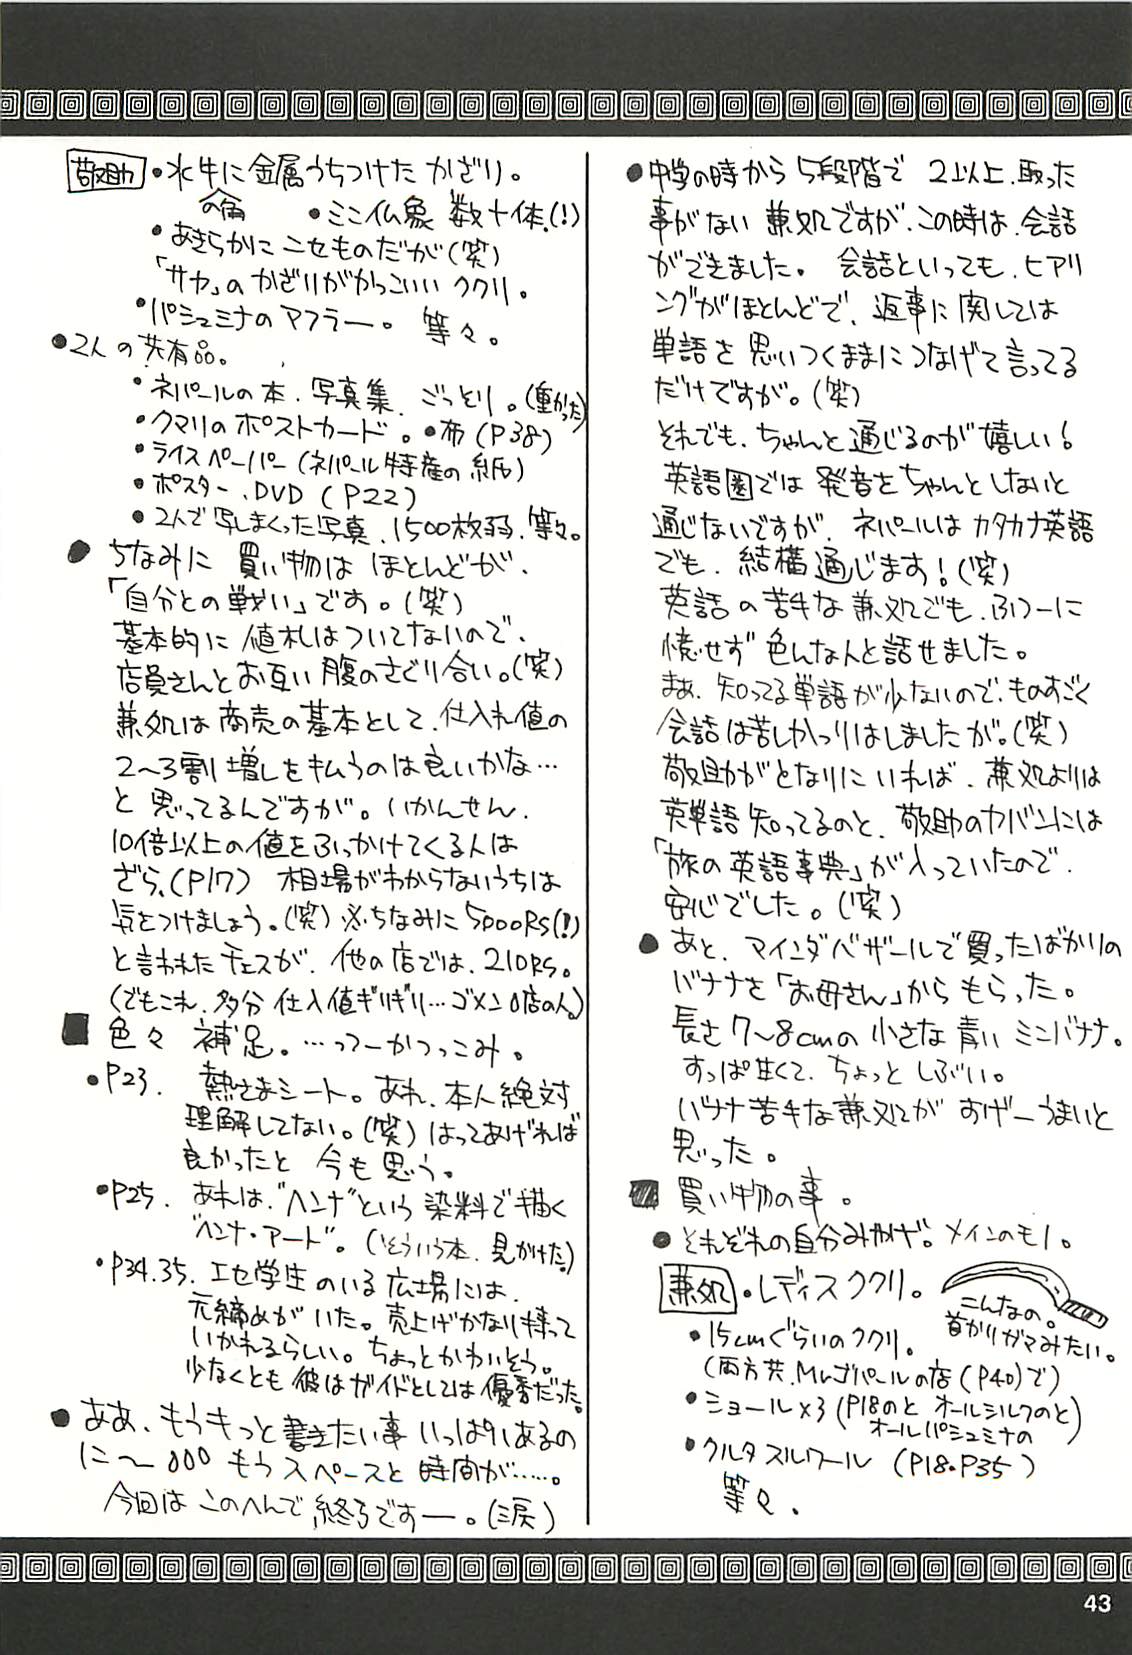 ●中学の時から5段階で 2以上、取った
事がない 兼処ですが、この時は、会話
ができました。 会話といっても、ヒアリ
ングがほとんどで、返事に関しては
単語を思いつくままにつなげて言ってる
だけですが。(笑)
それでも、ちゃんと通じるのが嬉しい!
英語圏では 発音をちゃんとしないと
通じないですが、ネパールはカタカナ英語
でも、結構通じます!(笑)
英語の苦手な兼処でも、ふつーに
憶せず色んな人と話せました。
まぁ、知ってる単語が少ないので、ものすごく
会話は苦しかったりはしましたが。(笑)
敬助がとなりにいれば、兼処よりは
英単語知ってるのと、敬助のカバンには
「旅の英語事典」が入っていたので、
安心でした。(笑)
●あと、マインダベザールで買ったばかりの
バナナを「お母さん」からもらった。
長さ7〜8cmの小さな青いミニバナナ。
すっぱ甘くて、ちょっとしぶい。
バナナ苦手な兼処が おげーうまいと
思った。
■買い物の事。
●それぞれの自分みやげ。メインのモノ。
兼処 ・レディスククリ。
こんなの。
首かりガマみたい。
・15cmぐらいのククリ。
(両方共、Mr.ゴパールの店(P40)で)
・ショール×3(P18のと オールシルクのと)
オールパシュミナの
・クルタスルワール (P18・P35)
等々。
敬助 ・水牛に金属うちつけた かざり。
の角
・ミニ仏象 数十体。(!)
・あきらかに ニセものだが(笑)
「サヤ」のかざりがかっこいい ククリ。
・パシュミナのマフラー。 等々。
●2人の共有品。
・ネパールの本、写真集、ごっとり。(重かった)
・クマリのポストカード。・布(P38)
・ライスペーパー(ネパール特産の紙)
・ポスター、DVD(P22)
・2人で写しまくった写真、1500枚弱、等々。
●ちなみに 買い物は ほとんどが、
「自分との戦い」です。(笑)
基本的に 値札はついてないので、
店員さんとお互い腹のさぐり合い。(笑)
兼処は商売の基本として、仕入れ値の
2〜3割増しを払うのは良いかな…
と思ってるんですが。いかんせん、
10倍以上の値をふっかけてくる人は
ざら、(P17) 相場がわからないうちは
気をつけましょう。(笑) ※ちなみに5000RS(!)
と言われたチェスが、他の店では、210RS。
(でもこれ、多分 仕入値ギリギリ…ゴメンの店の人。)
■色々 補足。…ってーかつっこみ。
・P23. 熱さまシート。あれ、本人絶対
理解してない。(笑)はってあげれば
良かったと 今も思う。
・P25. あれは、"ヘンナ"という染料で描く
"ヘンナ・アート"。(そういう本、見かけた。)
・P34.35. エセ学生のいる広場には、
元締めがいた。売上げかなり持って
いかれるらしい。ちょっとかわいそう。
少なくとも彼はガイドとしては優秀だった。
●ああ、もうもっと書きたい事いっぱいあるの
に〜 もうスペースと時間が……。
今回は このへんで 終了ですー。(涙)
43